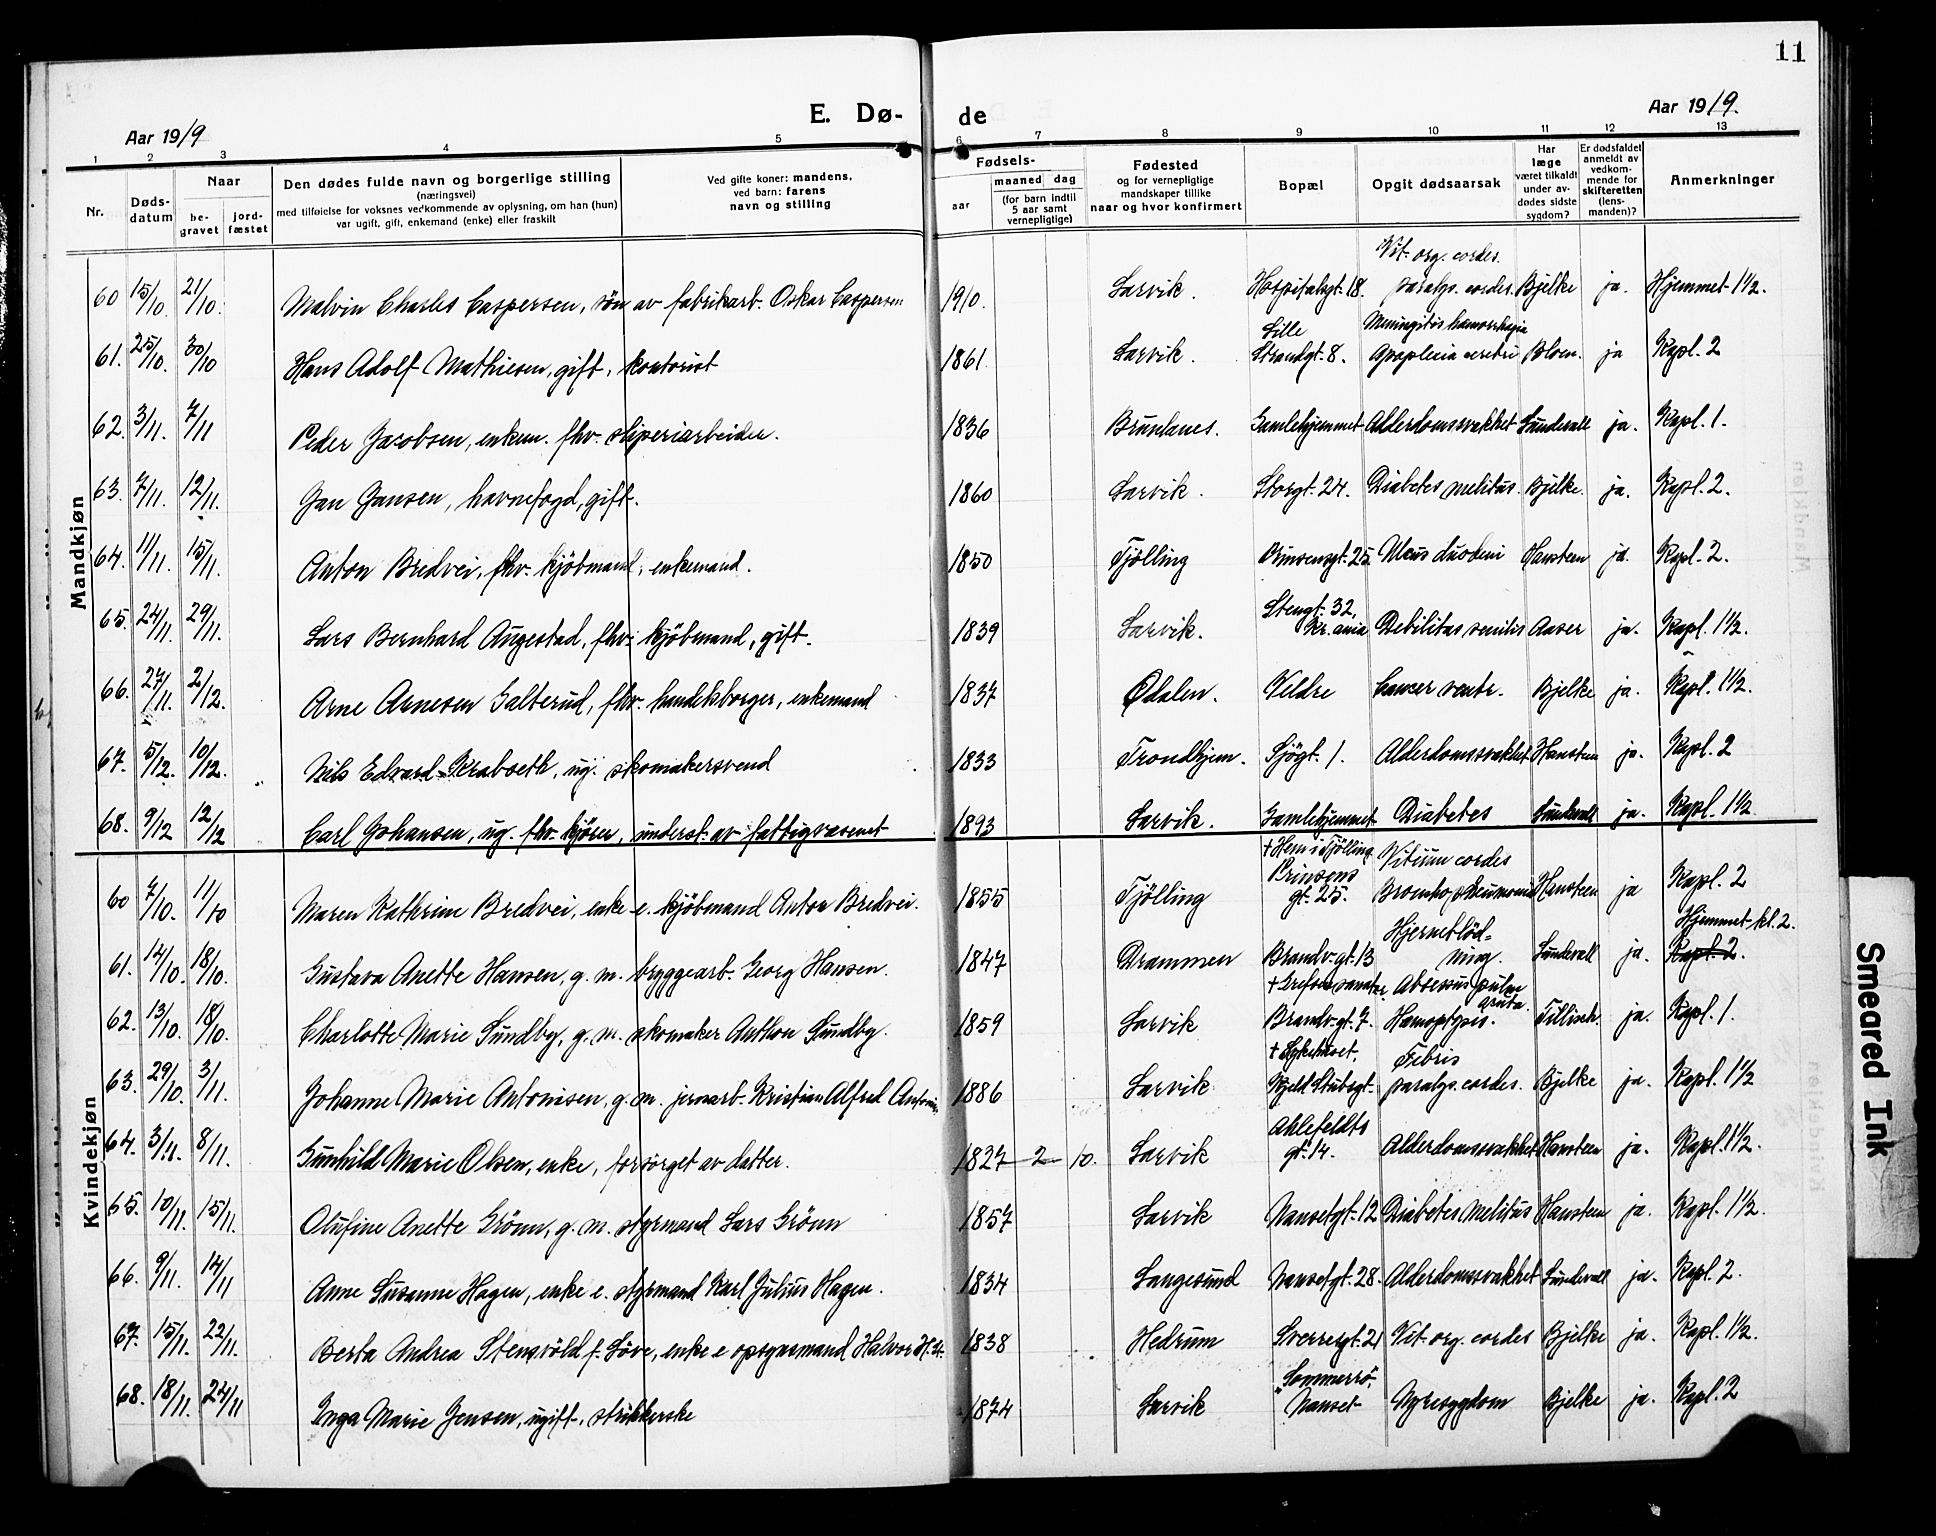 11
E. Dø- de
Aar 1919
Aar 1919.
1 2 3 4 5 6 7 8 9 10 11 12 13
Nr.
Døds-
datum
Naar
be-
gravet
jord-
fæstet
Den dødes fulde navn og borgerlige stilling
(næringsvei)
med tilføielse for voksnes vedkommende av oplysning, om han (hun)
var ugift, gift, enkemand (enke) eller fraskilt
Ved gifte koner: mandens,
ved barn: farens
navn og stilling
Fødsels-
aar
maaned dag
(for barn indtil
5 aar samt
vernepligtige)
Fødested
og for vernepligtige
mandskaper tillike
naar og hvor konfirmert
Bopæl
Opgit dødsaarsak
Har
læge
været tilkaldt
under av-
dødes sidste
sygdom?
Er dødsfaldet
anmeldt av
vedkom-
mende for
skifteretten
(lens-
manden)?
Anmerkninger
Mandkjøn
60 15/10. 21/10. Malvin Charles Caspersen, søn av fabrikarb. Oskar Caspersen 1910. Larvik. Hospitalgt. 18. Vit. org. cordis. paralys. cordis. Bjelke ja. Hjemmet 1½.
61. 25/10. 30/10 Hans Adolf Mathiesen, gift, kontorist 1861 Larvik. Lille Strandgt. 8. Meningitis hæmorrhagia Apoplexia cerebri Bloen. ja Kapl. 2
62. 3/11. 7/11 Peder Jacobsen, enkem. fhv. sliperiarbeider. 1836 Brunlanes. Gamlehjemmet Alderdomssvakhet Sundevall ja. Kapl. 1.
63. 7/11. 12/11. Jan Jansen, havnefogd, gift. 1860 Larvik. Storgt. 24. Diabetes melitus. Bjelke. ja. Kapl. 2.
64. 11/11. 15/11. Anton Bredvei, fhv. kjöbmand, enkemand. 1850 Tjölling Prinsensgt. 25 Ulcus duodeni Hansteen ja. Kapl. 2.
65. 24/11. 29/11. Lars Bernhard Augestad, fhv. kjöbmand, gift. 1839 Larvik. Stengt. 32, Kr.ania Debilitas senilis Aaser ja. Kapl. 1½.
66. 27/11. 2/12. Arne Arnesen Galterud, fhv. handelsborger, enkemand 1837 Ödalen. Veldre Cancer ventr. Bjelke ja. Kapl. 1½.
67. 5/12. 10/12. Nils Edvard Kraboeth, ug. skomakersvend 1833 Trondhjem. Sjögt. 1. Alderdomssvakhet Hansteen ja. Kapl. 2
68. 9/12 12/12 Carl Johansen, ug. fhv. kjörer, underst. av fattigvæsenet 1893 Larvik. Gamlehjemmet Diabetes Sundevall ja. Kapl. 1½.
Kvindekjøn
60 7/10. 11/10 Maren Kathrine Bredvei, enke e. kjöbmand Anton Bredvei. 1855 Tjölling + Hem i Tjölling Prinsens gt. 25. Vitium cordis Broncho, pneumonia Hansteen ja Kapl. 2
61. 14/10. 18/10. Gustava Anette Hansen, g. m. bryggearb. Georg Hansen. 1847 Drammen Brandv.gt. 13 Hjerneblöd- ning. Sundevall ja. Hjemmet kl. 2. Kapl. 2.
62. 13/10. 18/10. Charlotte Marie Sundby, g. m. skomaker Anthon Sundby. 1859 Larvik + Grefsen sanator. Brandv.gt. 7. Absessus pulm acuta. Hæmoptysis. Tillisch. ja. Kapl. 1.
63. 29/10. 3/11. Johanne Marie Antonisen, g. m. jernarb. Kristian Alfred Antonis. 1886 Larvik + Sykehuset. Kjeld Stubsgt. Febris paralys. cordis. Bjelke ja. Kapl. 1½
64. 3/11. 8/11. Gunhild Marie Olsen, enke, forsörget av datter. 1827 - 2 - 10. Larvik Ahlefeldts gt. 14. Alderdomssvakhet Hansteen ja. Kapl. 1½.
65. 10/11. 15/11. Olufine Anette Grönn, g. m. styrmand Lars Grönn 1857 Larvik Nansetgt. 12 Diabetes melitus Hansteen ja. Kapl. 1½.
66. 9/11. 14/11 Anne Susanne Hagen, enke e. styrmand Karl Julius Hagen. 1834 Langesund Nansetgt. 28. Alderdomssvakhet Sundevall ja. Kapl. 2.
67. 15/11. 22/11. Berta Andrea Stensvöld f. Löve, enke e opsynsmand Halvor H. St. 1838 Hedrum Sverresgt. 21 Vit. org. cordis Bjelke ja. Kapl. 1½.
68. 18/11. 24/11 Inga Marie Jensen, ugift, strikkerske 1874 Larvik "Sommerrö", Nanset Nyresygdom Bjelke ja. Kapl. 2
Smeared Ink